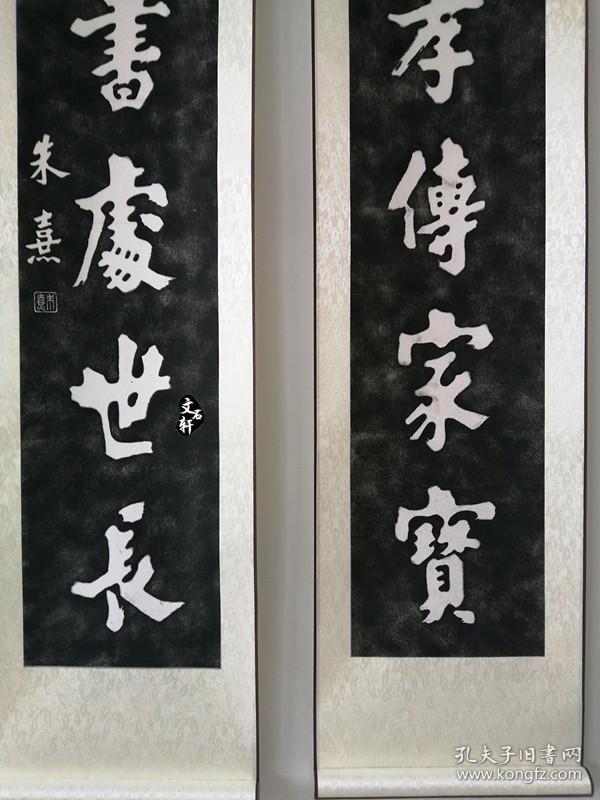 孝傳家寶
書處世長
朱熹
朱熹
文石轩
孔夫子旧書网
www.kongfz.com